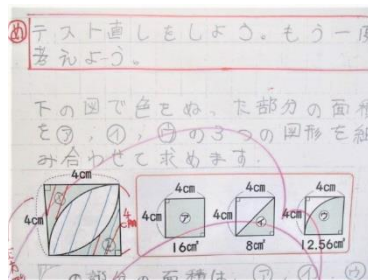 め テスト直しをしよう。もう一度
考えよう。
下の図で色をぬった部分の面積
を㋐,㋑,㋒の3つの図形を組
み合わせて求めます。
4cm 4cm 4cm 4cm
4cm 4cm 4cm ㋐ 4cm ㋑ 4cm ㋒
16cm² 8cm² 12.56cm²
の部分の面積は、㋐ ㋑ ㋒